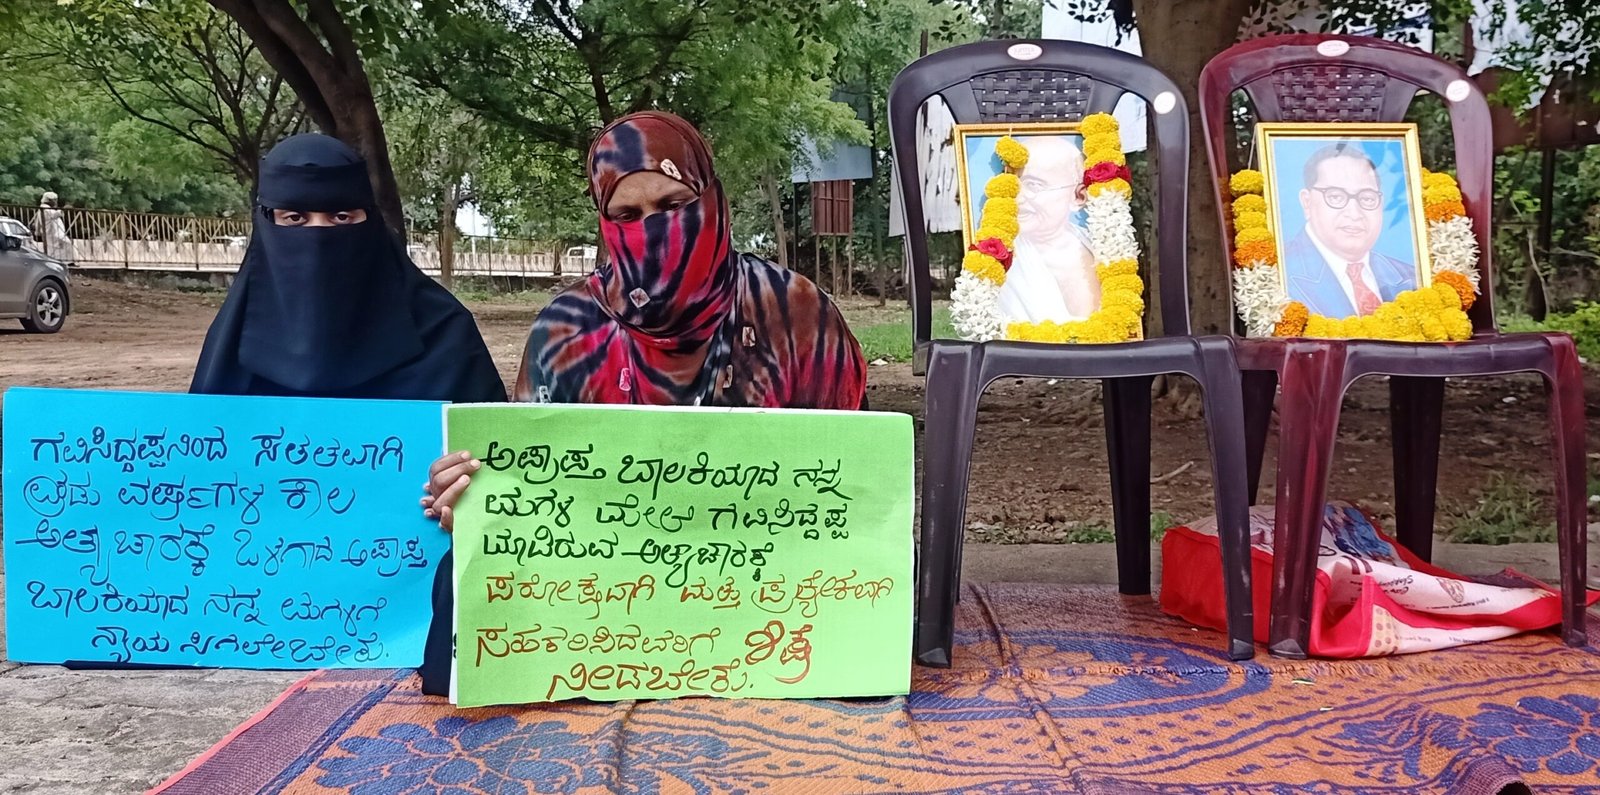 ಗವಿಸಿದ್ದಪ್ಪನಿಂದ ಸತತವಾಗಿ
ಎರಡು ವರ್ಷಗಳ ಕಾಲ
ಅತ್ಯಾಚಾರಕ್ಕೆ ಒಳಗಾದ ಅಪ್ರಾಪ್ತ
ಬಾಲಕಿಯಾದ ನನ್ನ ಮಗಳಿಗೆ
ನ್ಯಾಯ ಸಿಗಲೇಬೇಕು.
ಅಪ್ರಾಪ್ತ ಬಾಲಕಿಯಾದ ನನ್ನ
ಮಗಳ ಮೇಲೆ ಗವಿಸಿದ್ದಪ್ಪ
ಮಾಡಿರುವ ಅತ್ಯಾಚಾರಕ್ಕೆ
ಪರೋಕ್ಷವಾಗಿ ಮತ್ತು ಪ್ರತ್ಯೇಕವಾಗಿ
ಸಹಕರಿಸಿದವರಿಗೆ ಶಿಕ್ಷೆ
ನೀಡಬೇಕು.